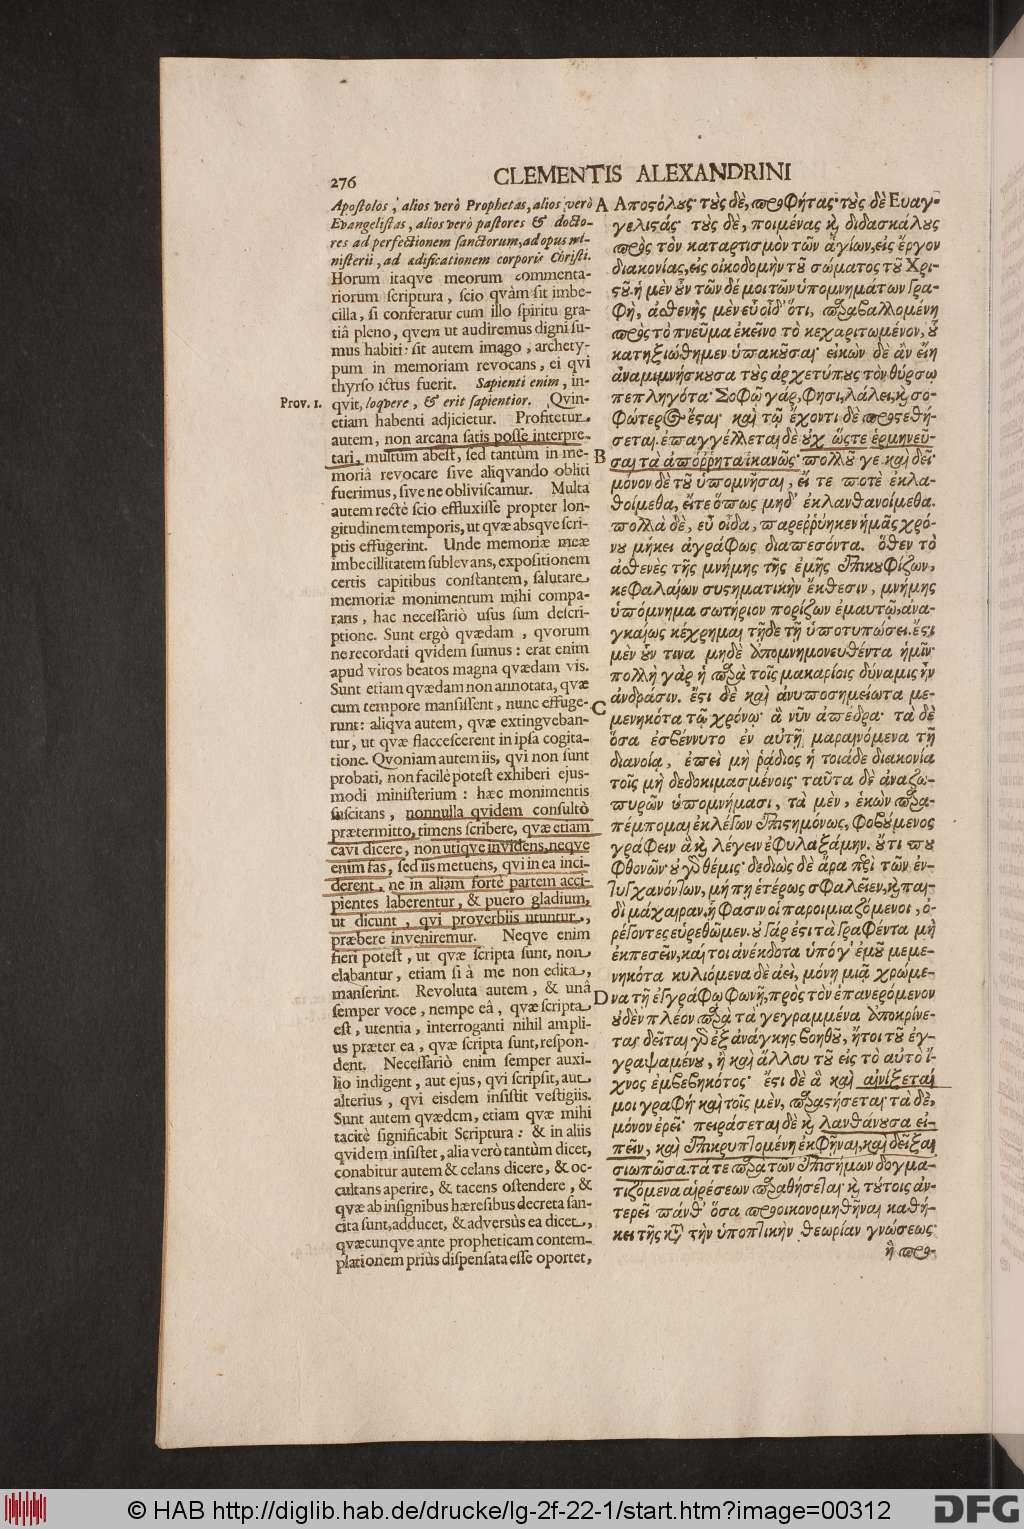 276
CLEMENTIS ALEXANDRINI
Apostolos, alios verò Prophetas, alios verò
Evangelistas, alios verò pastores & docto-
res ad perfectionem sanctorum, ad opus mi-
nisterii, ad ædificationem corporis Christi.
Horum itaqve meorum commenta-
riorum scriptura, scio qvàm sit imbe-
cilla, si conferatur cum illo spiritu gra-
tiâ pleno, qvem ut audiremus digni su-
mus habiti: sit autem imago, archety-
pum in memoriam revocans, ei qvi
thyrso ictus fuerit. Sapienti enim, in-
Prov. 1.
qvit, loqvere, & erit sapientior. Qvin-
etiam habenti adjicietur. Profitetur
autem, non arcana satis posse interpre-
tari, multum abest, sed tantùm in me-
moriâ revocare sive aliqvando obliti
fuerimus, sive ne obliviscamur. Multa
autem rectè scio effluxisse propter lon-
gitudinem temporis, ut qvæ absqve scri-
ptis effugerint. Unde memoriæ meæ
imbecillitatem sublevans, expositionem
certis capitibus constantem, salutare
memoriæ monimentum mihi compa-
rans, hac necessariò usus sum descri-
ptione. Sunt ergò qvædam, qvorum
ne recordati qvidem sumus: erat enim
apud viros beatos magna qvædam vis.
Sunt etiam qvædam non annotata, qvæ
cum tempore mansissent, nunc effuge-
runt: aliqva autem, qvæ extingveban-
tur, ut qvæ flaccescerent in ipsa cogita-
tione. Qvoniam autem iis, qvi non sunt
probati, non facilè potest exhiberi ejus-
modi ministerium: hæc monimentis
suscitans, nonnulla qvidem consultò
prætermitto, timens scribere, qvæ etiam
cavi dicere, non utiqve invidens, neqve
enim fas, sed iis metuens, qvi in ea inci-
derent, ne in aliam fortè partem acci-
pientes laberentur, & puero gladium,
ut dicunt, qvi proverbiis utuntur,
præbere inveniremur. Neqve enim
fieri potest, ut qvæ scripta sunt, non
elabantur, etiam si à me non edita,
manserint. Revoluta autem, & unâ
semper voce, nempe eâ, qvæ scripta
est, utentia, interroganti nihil ampli-
us præter ea, qvæ scripta sunt, respon-
dent. Necessariò enim semper auxi-
lio indigent, aut ejus, qvi scripsit, aut
alterius, qvi eisdem insistit vestigiis.
Sunt autem qvædcm, etiam qvæ mihi
tacitè significabit Scriptura: & in aliis
qvidem insistet, alia verò tantùm dicet,
conabitur autem & celans dicere, & oc-
cultans aperire, & tacens ostendere, &
qvæ ab insignibus hæresibus decreta san-
cita sunt, adducet, & adversùs ea dicet,
qvæcunqve ante propheticam contem-
plationem priùs dispensata esse oportet,
A Ἀποστόλους· τοὺς δὲ, προφήτας· τοὺς δὲ Εὐαγ-
γελιστάς· τοὺς δὲ, ποιμένας καὶ διδασκάλους
πρὸς τὸν καταρτισμὸν τῶν ἁγίων, εἰς ἔργον
διακονίας, εἰς οἰκοδομὴν τοῦ σώματος τοῦ Χρι-
στοῦ. ἡ μὲν οὖν τῶν δέ μοι τῶν ὑπομνημάτων γρα-
φὴ, ἀσθενὴς μὲν εὖ οἶδ᾽ ὅτι, παραβαλλομένη
πρὸς τὸ πνεῦμα ἐκεῖνο τὸ κεχαριτωμένον, οὗ
κατηξιώθημεν ὑπακοῦσαι· εἰκὼν δὲ ἂν εἴη
ἀναμιμνήσκουσα τοὺς ἀρχετύπους τὸν θύρσῳ
πεπληγότα· Σοφῷ γάρ, φησι, λάλει, καὶ σο-
φώτερος ἔσται· καὶ τῷ ἔχοντι δὲ προστεθή-
σεται. ἐπαγγέλλεται δὲ οὐχ ὥστε ἑρμηνεῦ-
B σαι τὰ ἀπόῤῥητα ἱκανῶς· πολλοῦ γε καὶ δεῖ·
μόνον δὲ τοῦ ὑπομνῆσαι, εἴ τε ποτὲ ἐκλα-
θοίμεθα, εἴτε ὅπως μηδ᾽ ἐκλανθανοίμεθα.
πολλὰ δὲ, εὖ οἶδα, παρεῤῥύηκεν ἡμᾶς χρό-
νου μήκει ἀγράφως διαπεσόντα. ὅθεν τὸ
ἀσθενὲς τῆς μνήμης τῆς ἐμῆς ἐπικουφίζων,
κεφαλαίων συστηματικὴν ἔκθεσιν, μνήμης
ὑπόμνημα σωτήριον πορίζων ἐμαυτῷ, ἀνα-
γκαίως κέχρημαι τῇδε τῇ ὑποτυπώσει. ἔστι
μὲν οὖν τινα μηδὲ ἀπομνημονευθέντα ἡμῖν·
πολλὴ γὰρ ἡ παρὰ τοῖς μακαρίοις δύναμις ἦν
ἀνδράσιν. ἔστι δὲ καὶ ἀνυποσημείωτα με-
C μενηκότα τῷ χρόνῳ· ἃ νῦν ἀπέδρα· τὰ δὲ
ὅσα ἐσβέννυτο ἐν αὐτῇ μαραινόμενα τῇ
διανοίᾳ, ἐπεὶ μὴ ῥᾴδιος ἡ τοιάδε διακονία
τοῖς μὴ δεδοκιμασμένοις· ταῦτα δὲ ἀναζω-
πυρῶν ὑπομνήμασι, τὰ μὲν, ἑκὼν παρα-
πέμπομαι ἐκλέγων ἐπιστημόνως, φοβούμενος
γράφειν ἃ καὶ λέγειν ἐφυλαξάμην. οὔτι που
φθονῶν· οὐ γὰρ θέμις· δεδιὼς δὲ ἄρα περὶ τῶν ἐν-
τυγχανόντων, μή πη ἑτέρως σφαλεῖεν, καὶ παι-
δὶ μάχαιραν, ᾗ φασιν οἱ παροιμιαζόμενοι, ὀ-
ρέγοντες εὑρεθῶμεν. οὐ γάρ ἐστι τὰ γραφέντα μὴ
ἐκπεσεῖν, καί τοι ἀνέκδοτα ὑπό γ᾽ ἐμοῦ μεμε-
νηκότα κυλιόμενα δὲ ἀεὶ, μόνῃ μιᾷ χρώμε-
D να τῇ ἐγγράφῳ φωνῇ, πρὸς τὸν ἐπανερόμενον
οὐδὲν πλέον παρὰ τὰ γεγραμμένα ἀποκρίνε-
ται· δεῖται γὰρ ἐξ ἀνάγκης βοηθοῦ, ἤτοι τοῦ ἐγ-
γραψαμένου, ἢ καὶ ἄλλου τοῦ εἰς τὸ αὐτὸ ἴ-
χνος ἐμβεβηκότος· ἔστι δὲ ἃ καὶ αἰνίξεταί
μοι γραφή· καὶ τοῖς μὲν, παραστήσεται· τὰ δὲ,
μόνον ἐρεῖ· πειράσεται δὲ καὶ λανθάνουσα εἰ-
πεῖν, καὶ ἐπικρυπτομένη ἐκφῆναι, καὶ δεῖξαι
σιωπῶσα. τά τε παρὰ τῶν ἐπισήμων δογμα-
τιζόμενα αἱρέσεων παραθήσεται· καὶ τούτοις ἀν-
τερεῖ πάνθ᾽ ὅσα προοικονομηθῆναι καθή-
κει τῆς κατὰ τὴν ὑποπτικὴν θεωρίαν γνώσεως·
ἢ προ-
© HAB http://diglib.hab.de/drucke/lg-2f-22-1/start.htm?image=00312
DFG